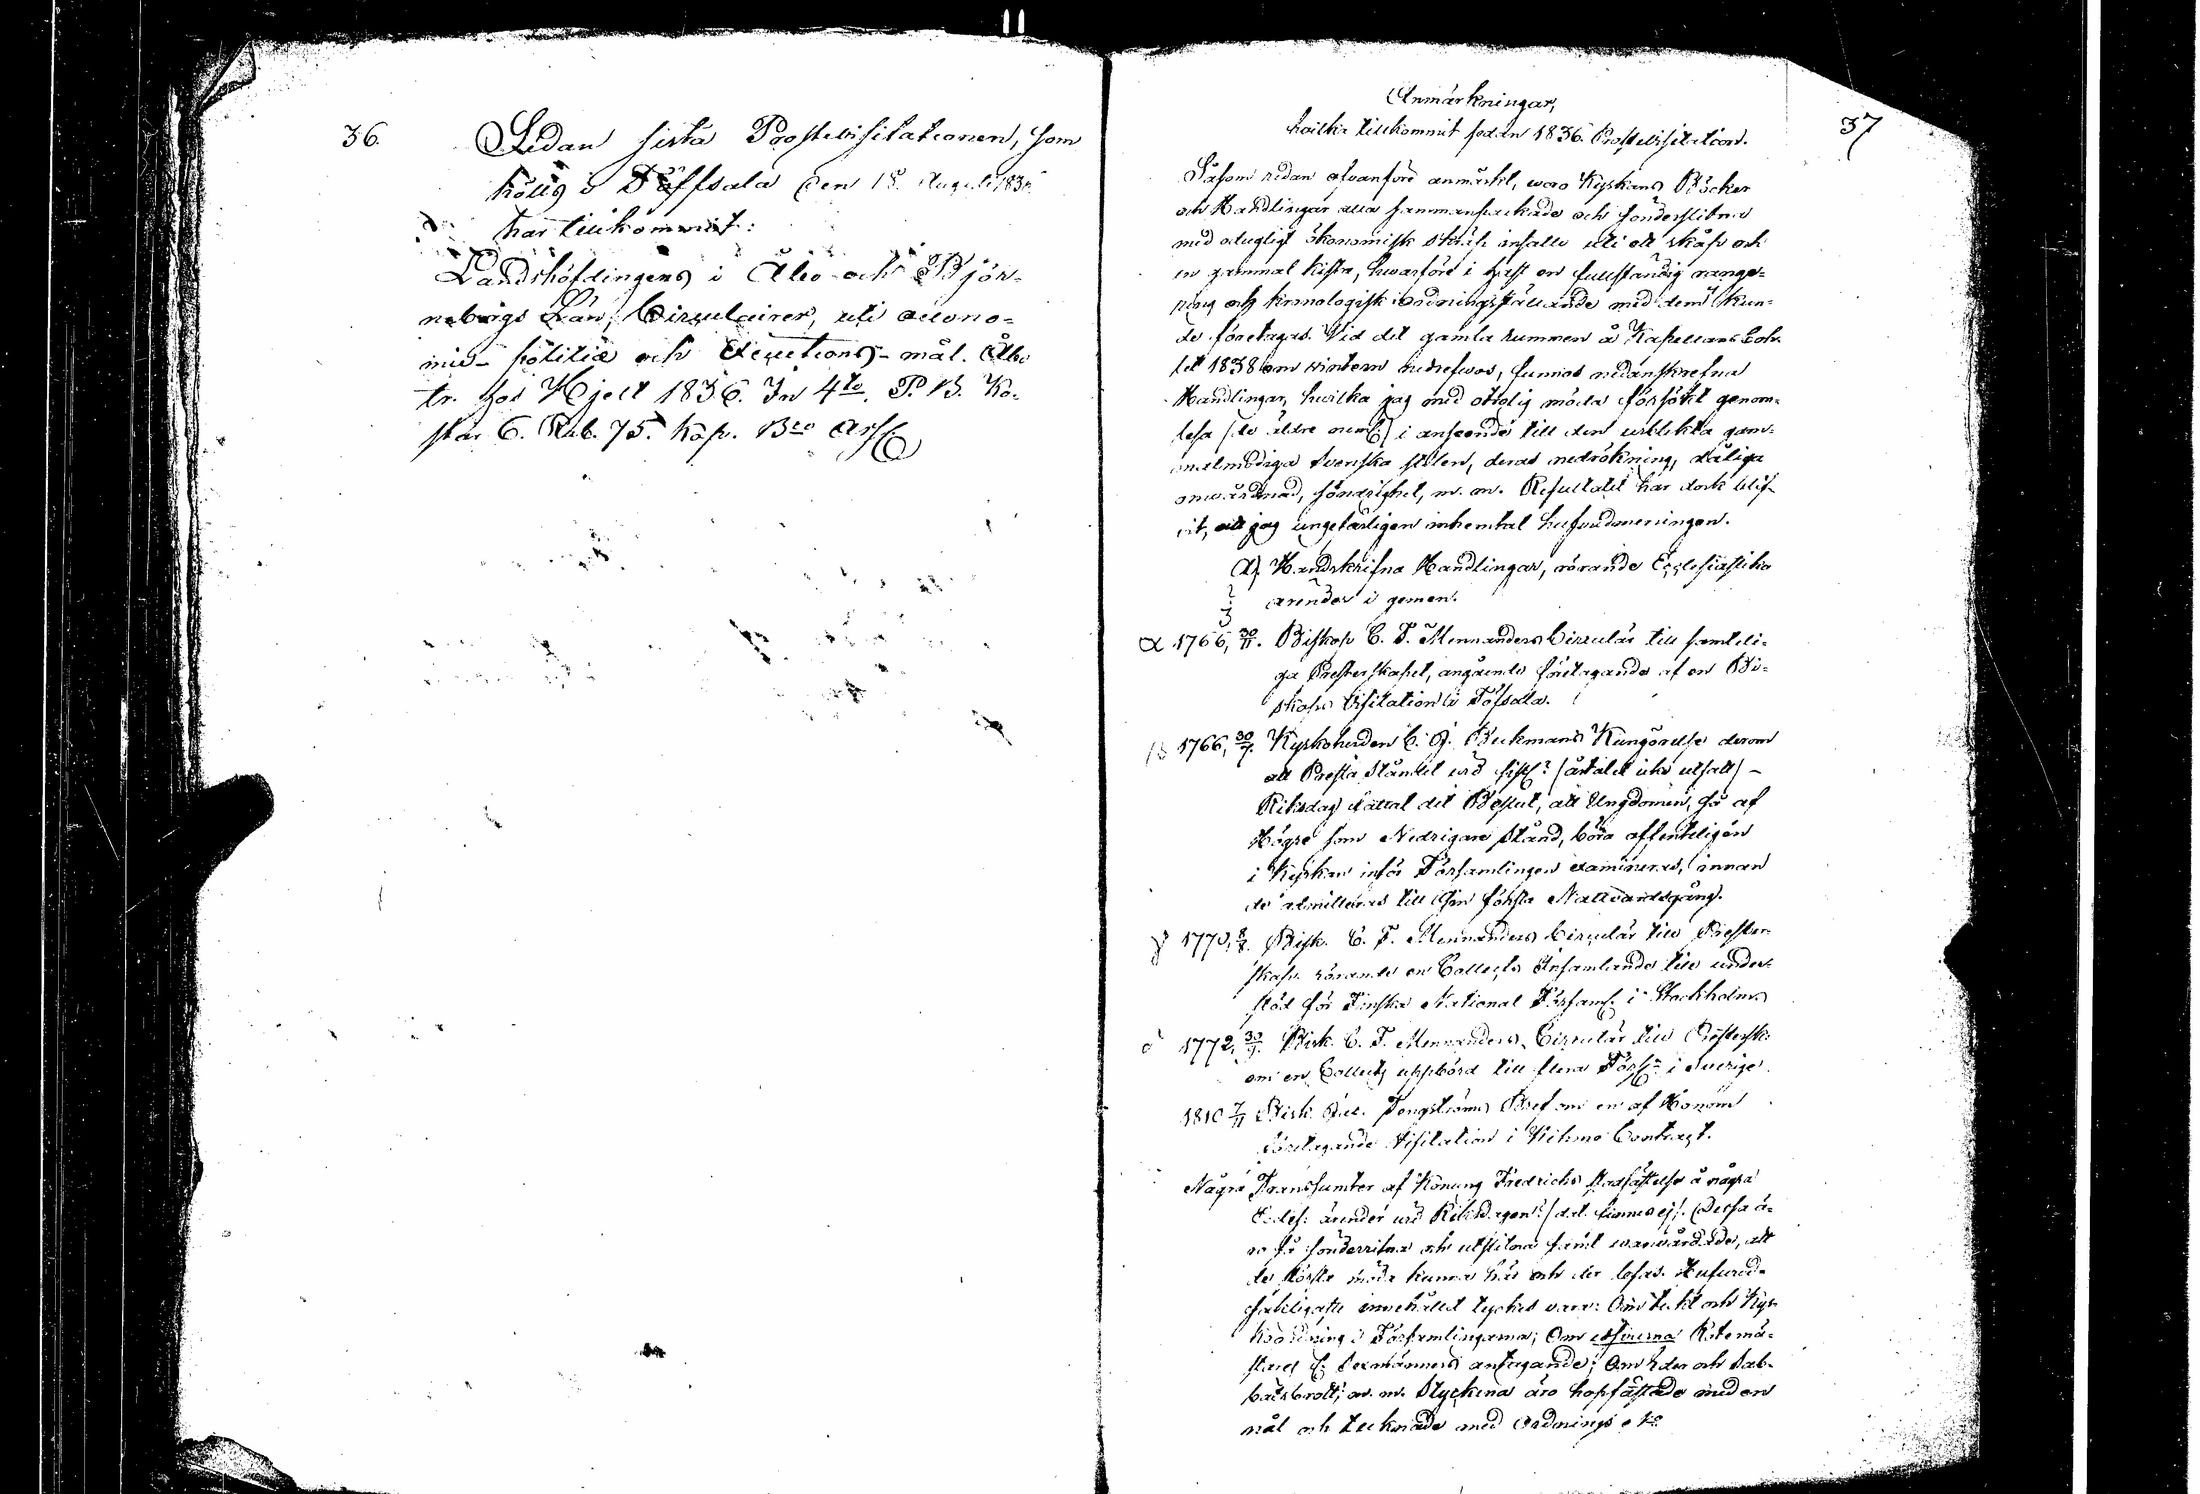 36.
Sedan sista Prostevisitationen, som
hölls i Töffsala den 18. Augusti 1836
har tillkommit:
Landshöfdingens i Åbo och Björ-
neborgs Län, Circulairer, uti oecono-
mie- politiæ och Executions-mål. Åbo
tr. hos Hjelt 1836. In 4to. P. B. Ko-
star 6. Rub. 75. Kop. Bco Ass.
37
Anmärkningar,
hvilka tillkommit sedan 1836. Prostvisitation.
Såsom redan ofvanföre anmärkt, woro Kyrkans Böcker
och Handlingar alla sammanpackade och sönderslitna
med odugligt ökonomisk skräp infalle uti ett skåp och
en gammal kista, hwarföre i hast en fullständig range-
ring och kronologisk iordningställande med dem kun-
de företagas. Vid det gamla rummen å Kapellans Bol-
let 1838 om wintern nedrefwos, funnos nedanskrefna
Handlingar, hwilka jag med otrolig möda försökt genom-
läsa (de äldre neml:) i anseende till den urblekta gam-
malmodiga Svenska stilen, deras nedrökning, dåliga
omwårdnad, söndrighet, m. m. Resultatet har dock blif-
vit, att jag ungefärligen inhemtat hufvudmeningen.
A). Handskrifna Handlingar, rörande Ecclesiastika
ärender i gemen.
α 1766, 30/11. Biskop C. F. Mennanders Circulär till samteli-
ga Presterskapet, angående företagande af en Bi-
skops Visitation i Töfsala.
β 1766, 30/7. Kyrkoherden C. J. Beckmans Kungörelse derom
att Presta Ståndet wid sist? (årtalet icke utsatt) -
Riksdag fattat det Beslut, att Ungdomen, så af
Högre som Nedrigare Stånd, böra offenteligen
i Kyrkan inför Församlingen examineras, innan
de admitteras till sin första Nattvardsgång.
γ 1770, 8/8. Bisk. C. F. Mennanders Circulär till Prester-
skap. rörande en Collects Insamlande till under-
stöd för Finska National Församl. i Stockholm.
δ 1772, 30/9. Bisk. C. F. Mennanders Circulär till Prestersk.
om en Collects uppbörd till flera Förs:r i Sverige.
1810 7/11 Bisk. Jac. Tengströms Bref om en af Honom
företagande Visitation i Wehmo Contract.
Några Transumter af Konung Fredrichs stadfästelse å några
Eccles: ärender wid Riksdagen? (dat. finnes ej). Dessa ä-
ro så sönderrifna och utslitna samt wanwårdade, att
de störste möda kunna här och der läsas. Hufwud-
sakligaste innehållet tyckes vara: Om tukt och Kyr-
koordning i Församlingarna; Om Rotemä-
stares f: Sexmänners antagande; Om Eder och Sab-
batsbrott; m. m. Styckena äro hopfästade med en
nål och tecknade med Ordnings